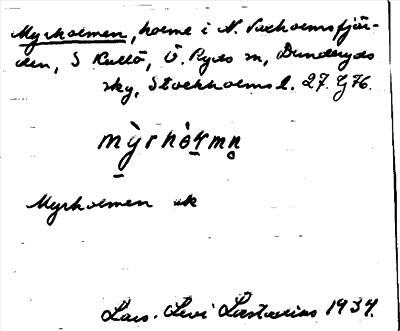 Myrholmen, holme i N. Vaxholmsfjär-
den, S Kullö, Ö. Ryds sn, Danderyds
skg, Stockholms l. 27. G76.
mỳrhòɫmn̥
Myrholmen ek
Lars-Levi Læstadius 1937.